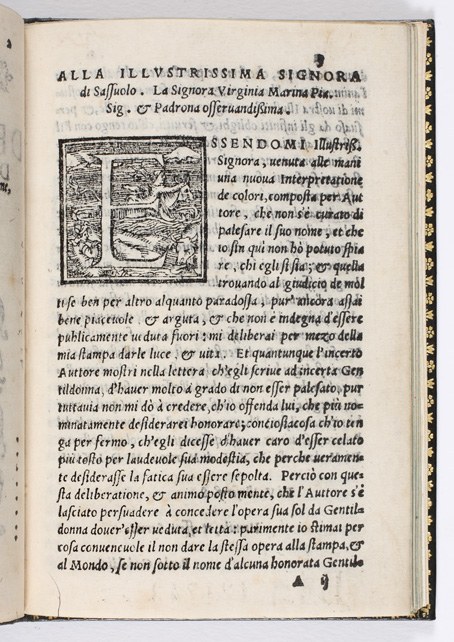 3
ALLA ILLVSTRISSIMA SIGNORA
di Sassuolo. La Signora Virginia Marina Pia.
Sig. & Padrona osseruandissima.
ESSENDOMI Illustriss.
Signora, uenuta alle mani
una nuoua Interpretatione
de colori, composta per Aut
tore, che non s'è curato di
palesare il suo nome, et che
io sin qui non hò potuto spia
re, chi egli si sia; & quella
trouando al giudicio di mol
ti se ben per altro alquanto paradossa, pur' ancora assai
bene piaceuole, & arguta, & che non è indegna d'essere
publicamente ueduta fuori: mi deliberai per mezo della
mia stampa darle luce, & uita. Et quantunque l'incerto
Auttore mostri nella lettera ch'egli scriue ad incerta Gen
tildonna, d'hauer molto à grado di non esser palesato, pur
tuttauia non mi dò à credere, ch'io offenda lui, che più no-
minatamente desiderarei honorare; conciosiacosa ch'io ten
ga per fermo, ch'egli dicesse d'hauer caro d'esser celato
più tosto per laudeuole sua modestia, che perche ueramen-
te desiderasse la fatica sua essere sepolta. Perciò con que-
sta deliberatione, & animo posto mente, che l'Auttore s'è
lasciato persuadere à concedere l'opera sua sol da Gentil-
donna douer'esser ueduta, et letta: parimente io stimai per
cosa conueneuole il non dare la stessa opera alla stampa, &
al Mondo, se non sotto il nome d'alcuna honorata Gentil-
A ij